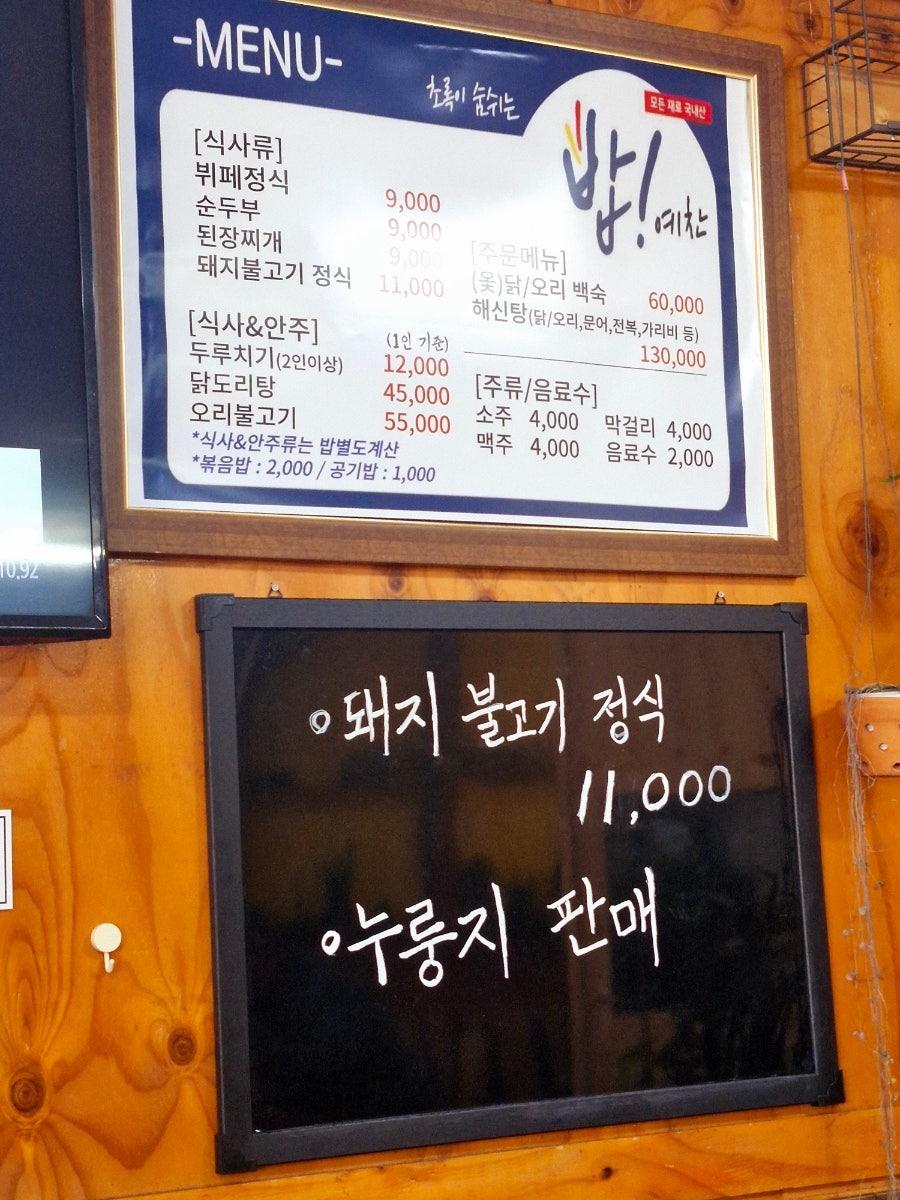 -MENU-
초록이 숨쉬는
모든 재료 국내산
밥! 예찬
[식사류]
뷔페정식 9,000
순두부 9,000
된장찌개 9,000
돼지불고기 정식 11,000
[식사&안주] (1인 기준)
두루치기(2인이상) 12,000
닭도리탕 45,000
오리불고기 55,000
*식사&안주류는 밥별도계산
*볶음밥 : 2,000 / 공기밥 : 1,000
[주문메뉴]
(옻)닭/오리 백숙 60,000
해신탕(닭/오리,문어,전복,가리비 등)
130,000
[주류/음료수]
소주 4,000 막걸리 4,000
맥주 4,000 음료수 2,000
10.92
돼지 불고기 정식
11,000
누룽지 판매